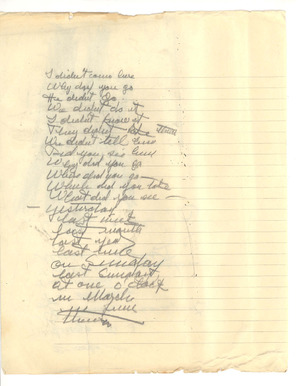 I didn't come here
Why did you go
He didn't Go
We didn't do it
I didn't know it
They didn't
We didn't tell him
Did you see him
Why did you go
When did you go
Where did you
What did you see
yesterday
last nite
last month
last year
last time
on Sunday
last Sunday
at one o clock
in March
in June